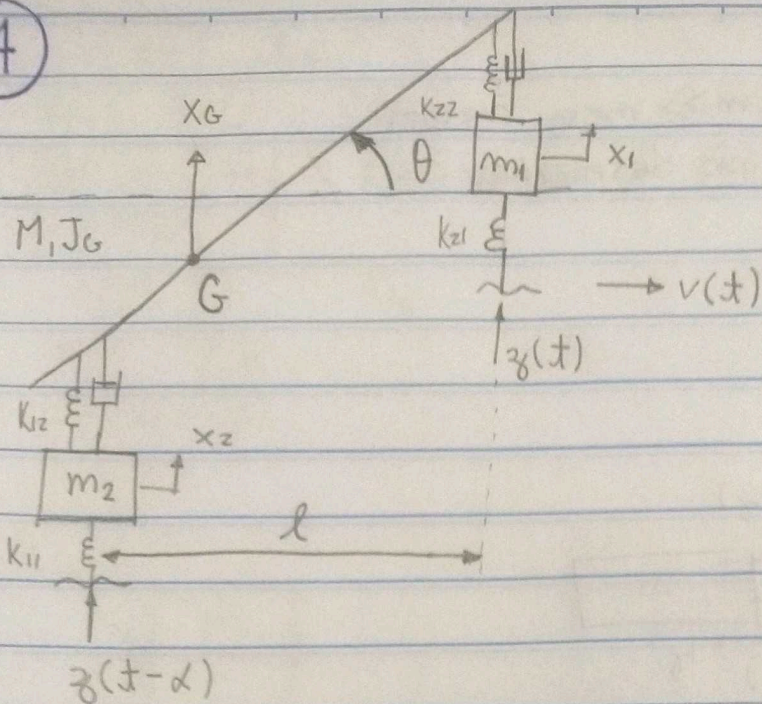 4
XG
K22
θ
m1
x1
M, JG
K21
G
v(t)
z(t)
K12
x2
m2
l
K11
z(t-α)